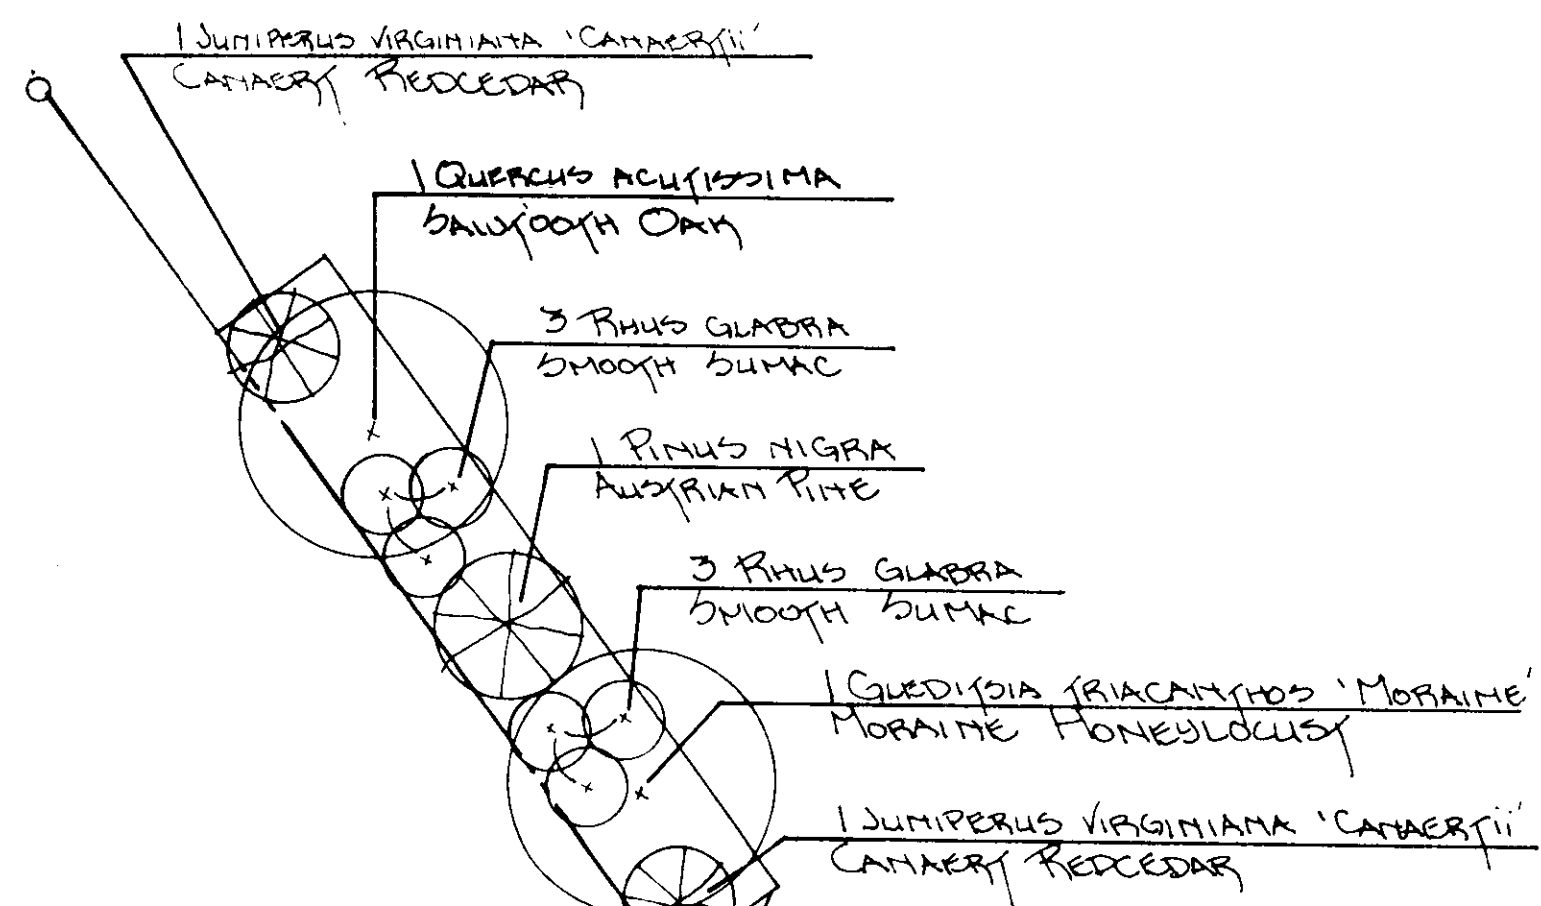 1 JUNIPERUS VIRGINIANA 'CANAERTii'
CANAERT REDCEDAR
1 QUERCUS ACUTISSIMA
SAWTOOTH OAK
3 RHUS GLABRA
SMOOTH SUMAC
1 PINUS NIGRA
AUSTRIAN PINE
3 RHUS GLABRA
SMOOTH SUMAC
1 GLEDITSIA TRIACANTHOS 'MORAINE'
MORAINE HONEYLOCUST
1 JUNIPERUS VIRGINIANA 'CANAERTii'
CANAERT REDCEDAR